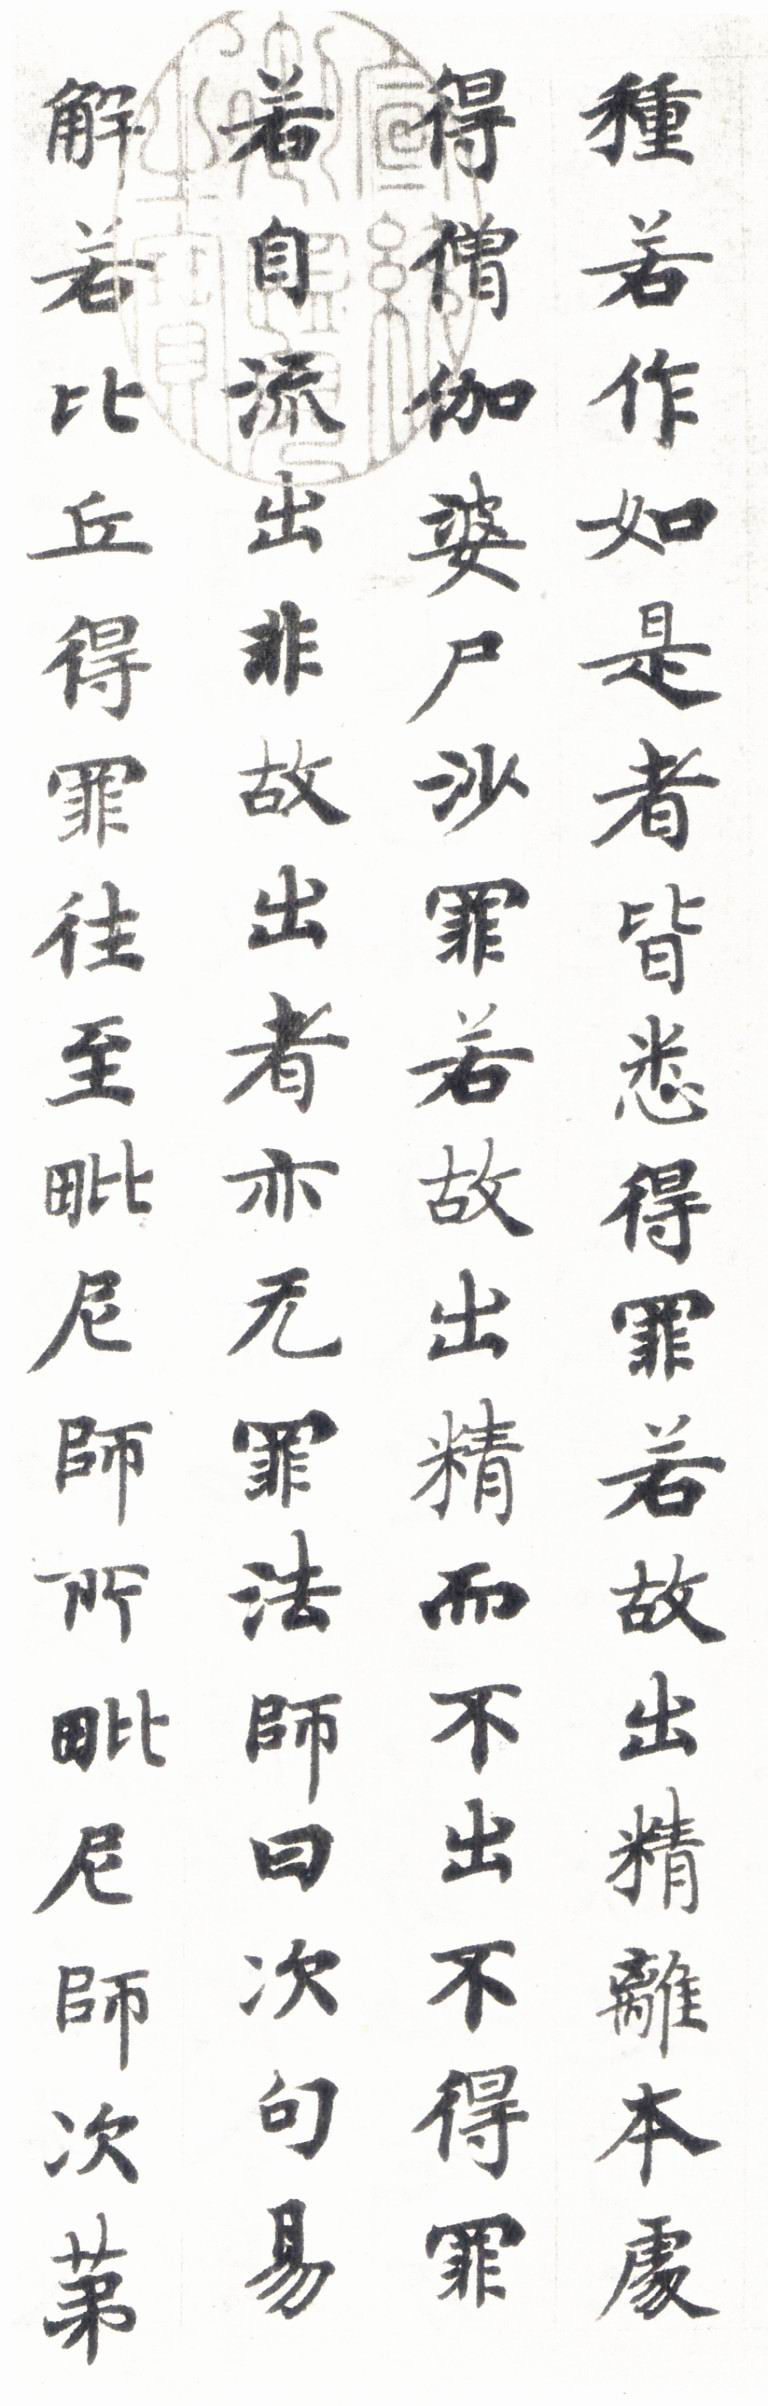 種若作如是者皆悉得罪若故出精離本處
得僧伽婆尸沙罪若故出精而不出不得罪
若自流出非故出者亦无罪法師曰次句易
解若比丘得罪往至毗尼師所毗尼師次第